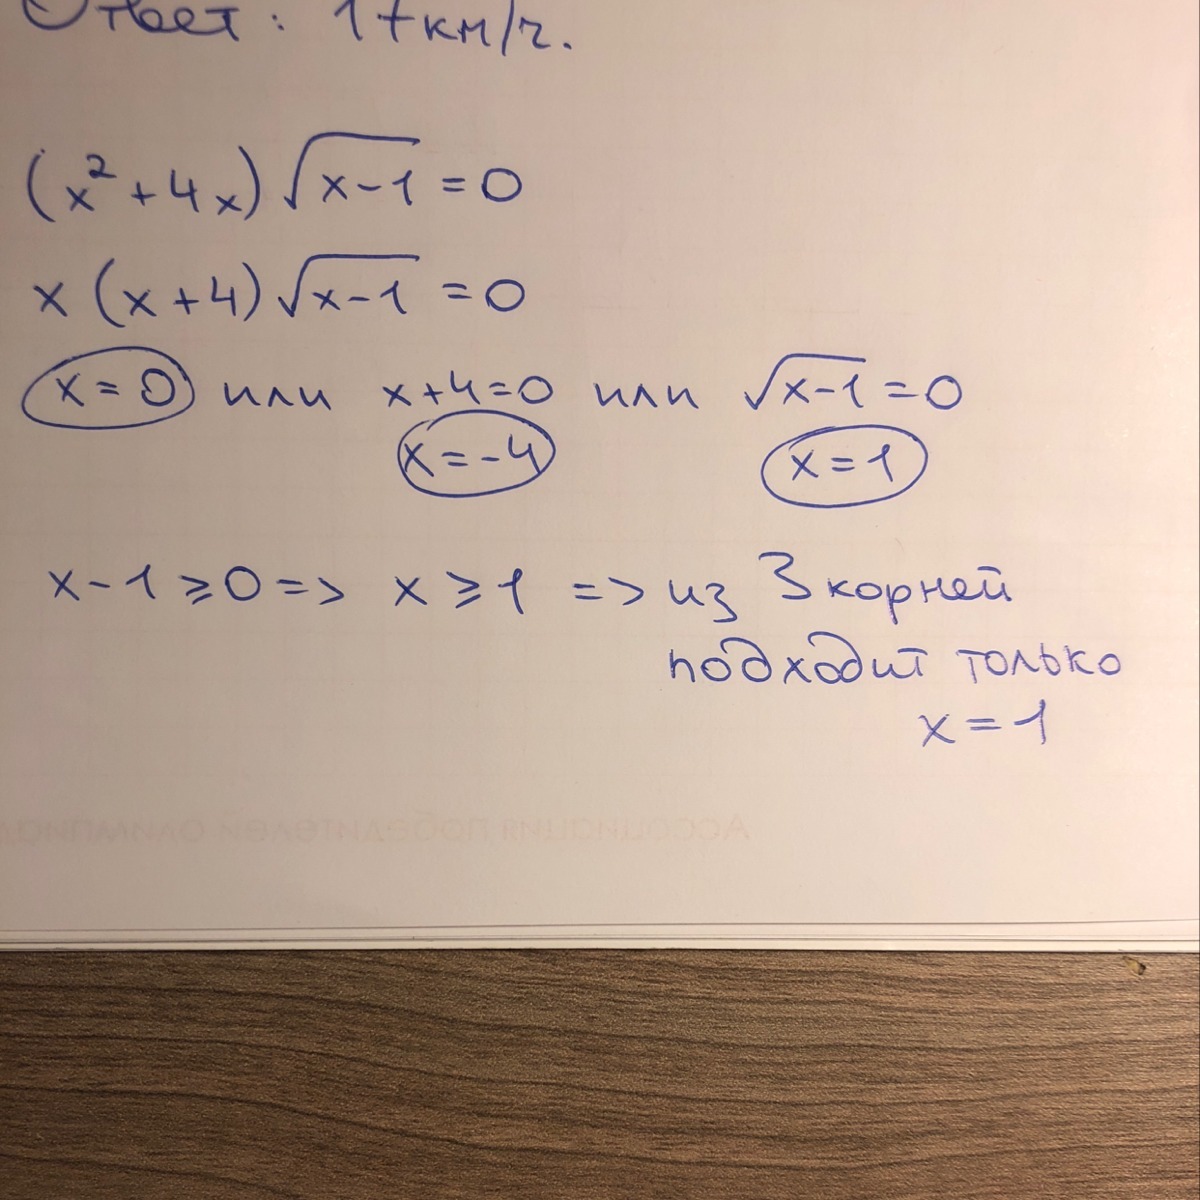 Ответ: 17км/ч.
(x²+4x)√(x-1)=0
x(x+4)√(x-1)=0
x=0 или x+4=0 или √(x-1)=0
x=-4 x=1
x-1⩾0=> x⩾1 => из 3 корней
подходит только
x=1
Ассоциация победителей олимпиад